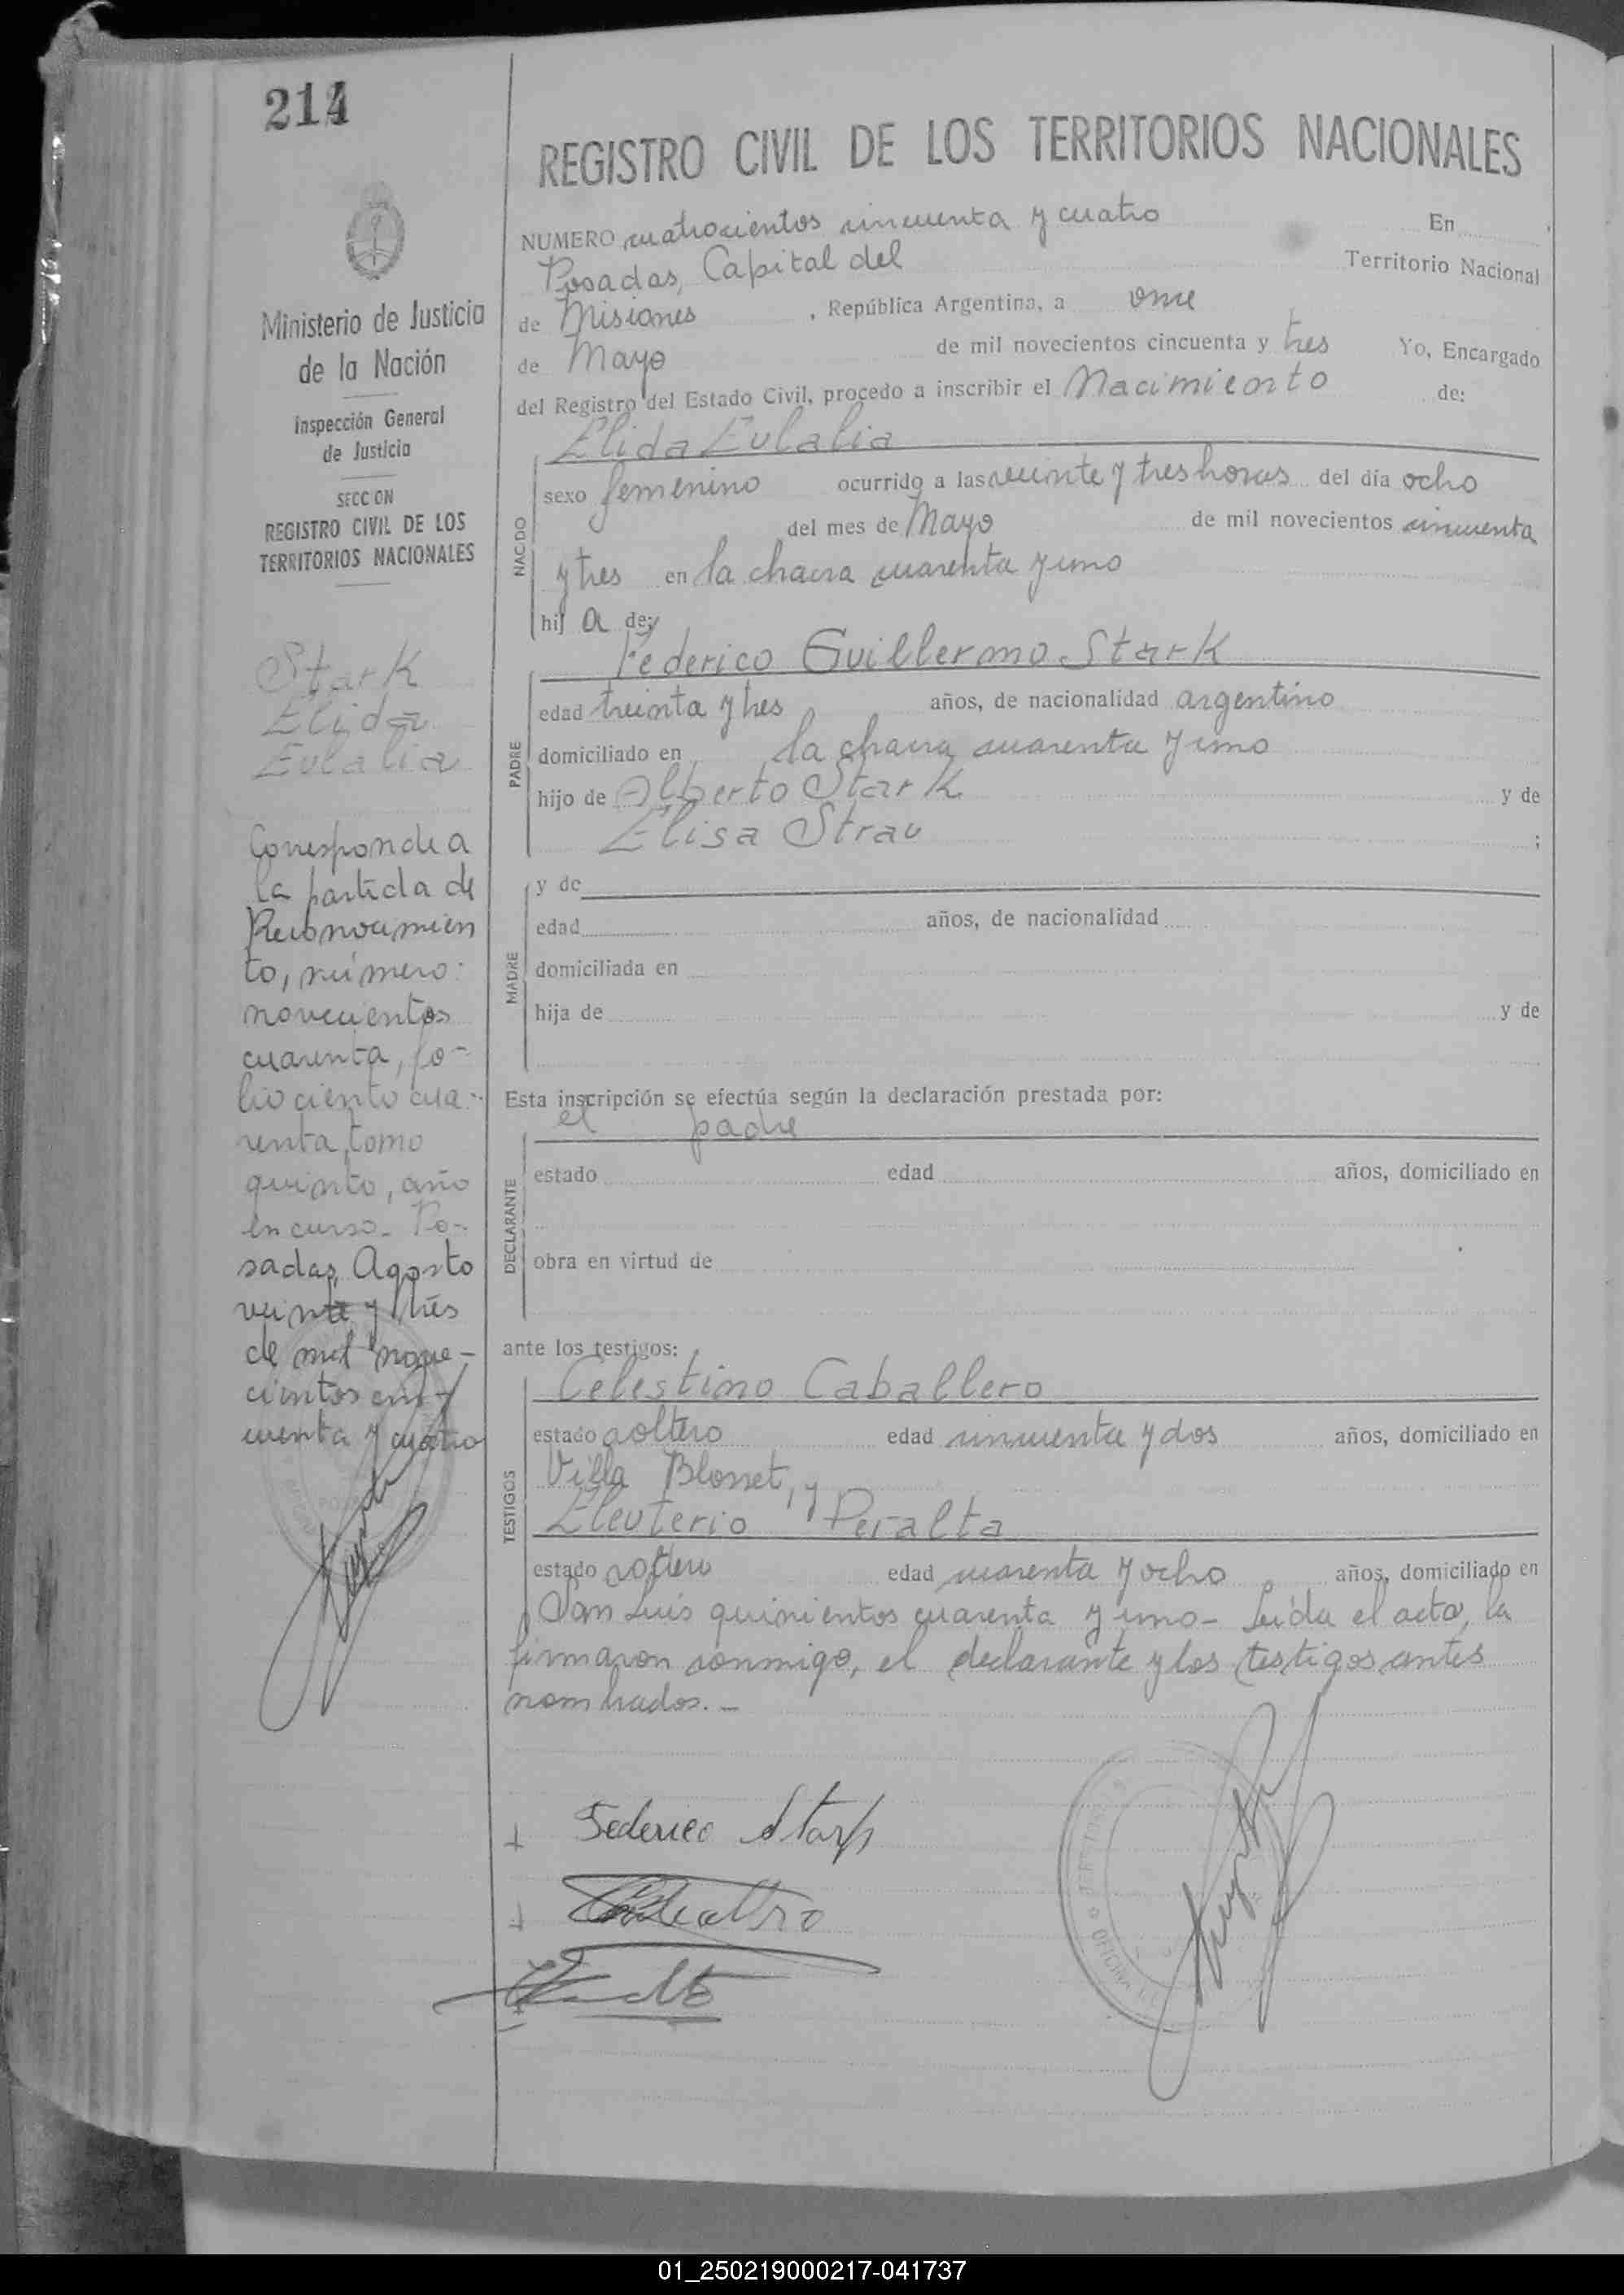 214
Ministerio de Justicia
de la Nación
Inspección General
de Justicia
SECC ON
REGISTRO CIVIL DE LOS
TERRITORIOS NACIONALES
Stark
Elida
Eulalia
Corresponde a
la partida de
Reconocimien
to, número:
novecientos
cuarenta, fo-
lio ciento cua-
renta, tomo
quinto, año
en curso. Po-
sadas, Agosto
veinte y tres
de mil nove-
cientos cin-
cuenta y cuatro
REGISTRO CIVIL DE LOS TERRITORIOS NACIONALES
NUMERO cuatrocientos cincuenta y cuatro En
Posadas, Capital del Territorio Nacional
de Misiones, República Argentina, a once
de Mayo de mil novecientos cincuenta y tres Yo, Encargado
del Registro del Estado Civil, procedo a inscribir el Nacimiento de:
NACIDO
Elida Eulalia
sexo femenino ocurrido a las veinte y tres horas del día ocho
del mes de Mayo de mil novecientos cincuenta
y tres en la chacra cuarenta y uno
hij a de:
PADRE
Federico Guillermo Stark
edad treinta y tres años, de nacionalidad argentino
domiciliado en la chacra cuarenta y uno
hijo de Alberto Stark y de
Elisa Strau ;
MADRE
y de
edad años, de nacionalidad
domiciliada en
hija de y de
Esta inscripción se efectúa según la declaración prestada por:
DECLARANTE
el padre
estado edad años, domiciliado en
obra en virtud de
ante los testigos:
TESTIGOS
Celestino Caballero
estado soltero edad cincuenta y dos años, domiciliado en
Villa Blosset, y
Eleuterio Peralta
estado soltero edad cuarenta y ocho años, domiciliado en
San Luis quinientos cuarenta y uno- Leída el acta, la
firmaron conmigo, el declarante y los testigos antes
nombrados.-
Federico Stark
01_250219000217-041737